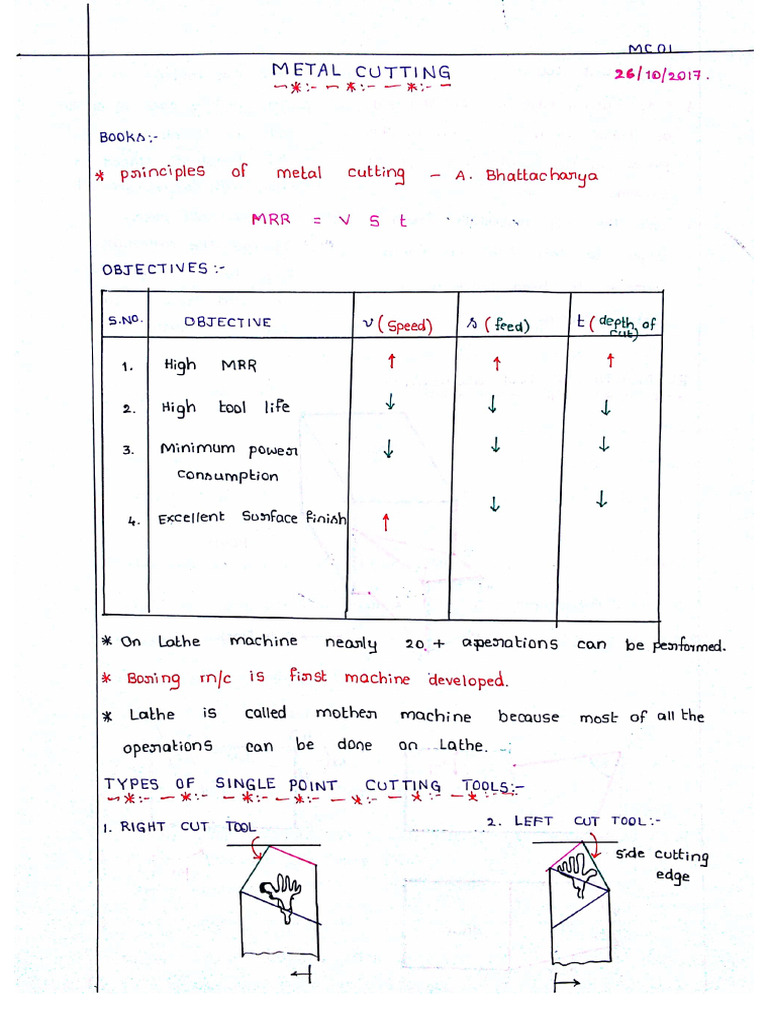 MC01
METAL CUTTING
26/10/2017.
Books:-
* principles of metal cutting - A. Bhattacharya
MRR = V S t
OBJECTIVES:-
S.NO. OBJECTIVE v (Speed) s (feed) t (depth of cut)
1. High MRR ↑ ↑ ↑
2. High tool life ↓ ↓ ↓
3. Minimum power ↓ ↓ ↓
consumption
4. Excellent Surface finish ↑ ↓ ↓
* On Lathe machine nearly 20 + operations can be performed.
* Boring m/c is first machine developed.
* Lathe is called mother machine because most of all the
operations can be done on Lathe.
TYPES OF SINGLE POINT CUTTING TOOLS:-
1. RIGHT CUT TOOL
2. LEFT CUT TOOL:-
side cutting
edge